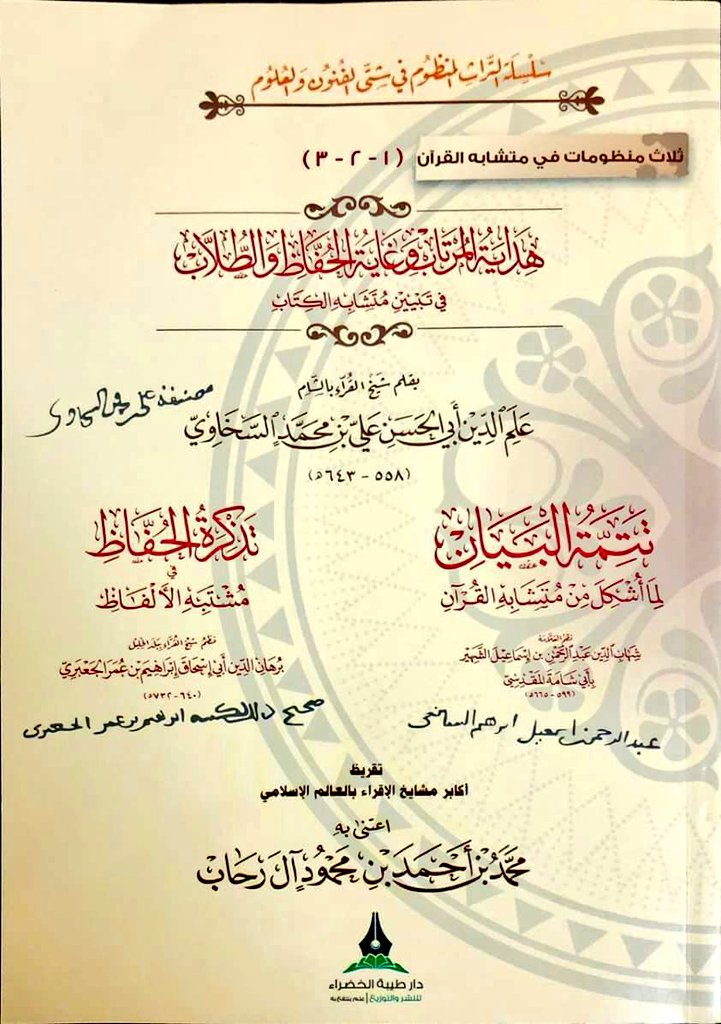 سلسلة التراث المنظوم في شتى الفنون والعلوم
ثلاث منظومات في متشابه القرآن (١-٢-٣)
هداية المرتاب وغاية الحفاظ والطلاب
في تبيين متشابه الكتاب
بقلم شيخ القراء بالشام
علم الدين أبي الحسن علي بن محمد السخاوي
(٥٥٨ - ٦٤٣هـ)
مصنفه علي السخاوي
تتمة البيان
لما أشكل من متشابه القرآن
نظم العلامة
شهاب الدين عبد الرحمن بن إسماعيل الشهير
بأبي شامة المقدسي
(٥٩٩-٦٦٥هـ)
عبد الرحمن اسمعيل ابرهم الشافعي
تذكرة الحفاظ
في
مشتبه الألفاظ
نظم شيخ القراء ببلد الخليل
برهان الدين أبي إسحاق إبراهيم بن عمر الجعبري
(٦٤٠-٧٣٢هـ)
صحيح ذلك كتبه ابرهيم بن عمر الجعبري
تقريظ
أكابر مشايخ الإقراء بالعالم الإسلامي
اعتنى به
محمد بن أحمد بن محمود آل رحاب
دار طيبة الخضراء
للنشر والتوزيع | علم ينتفع به